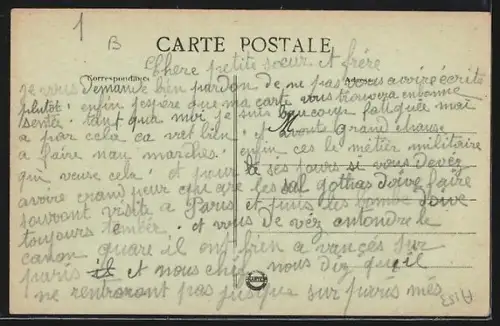 1
B
CARTE POSTALE
Correspondance
Adresse
Chere petite sœur et frére
je vous demande bien pardon de ne pas vous avoire écrite
plutôt enfin j'espére que ma carte vous trouvera en bonne
sentér tant qua moi je suis baucoup fatiguée mai
a par cela ca vet bien et avons grand chause
a faire nau marches enfin ces le métier militaire
qu veuse cela et pour la ses jours si vous devéz
avoire grand peur car que les sal gottias doive faire
souvront visite a Paris et puis les bombe doive
toujours tember et vous devéz entondre le
canon quare il en bien avancés sur
paris il et nous chif nous diz qu'il
ne rentreront pas jusque sur paris més